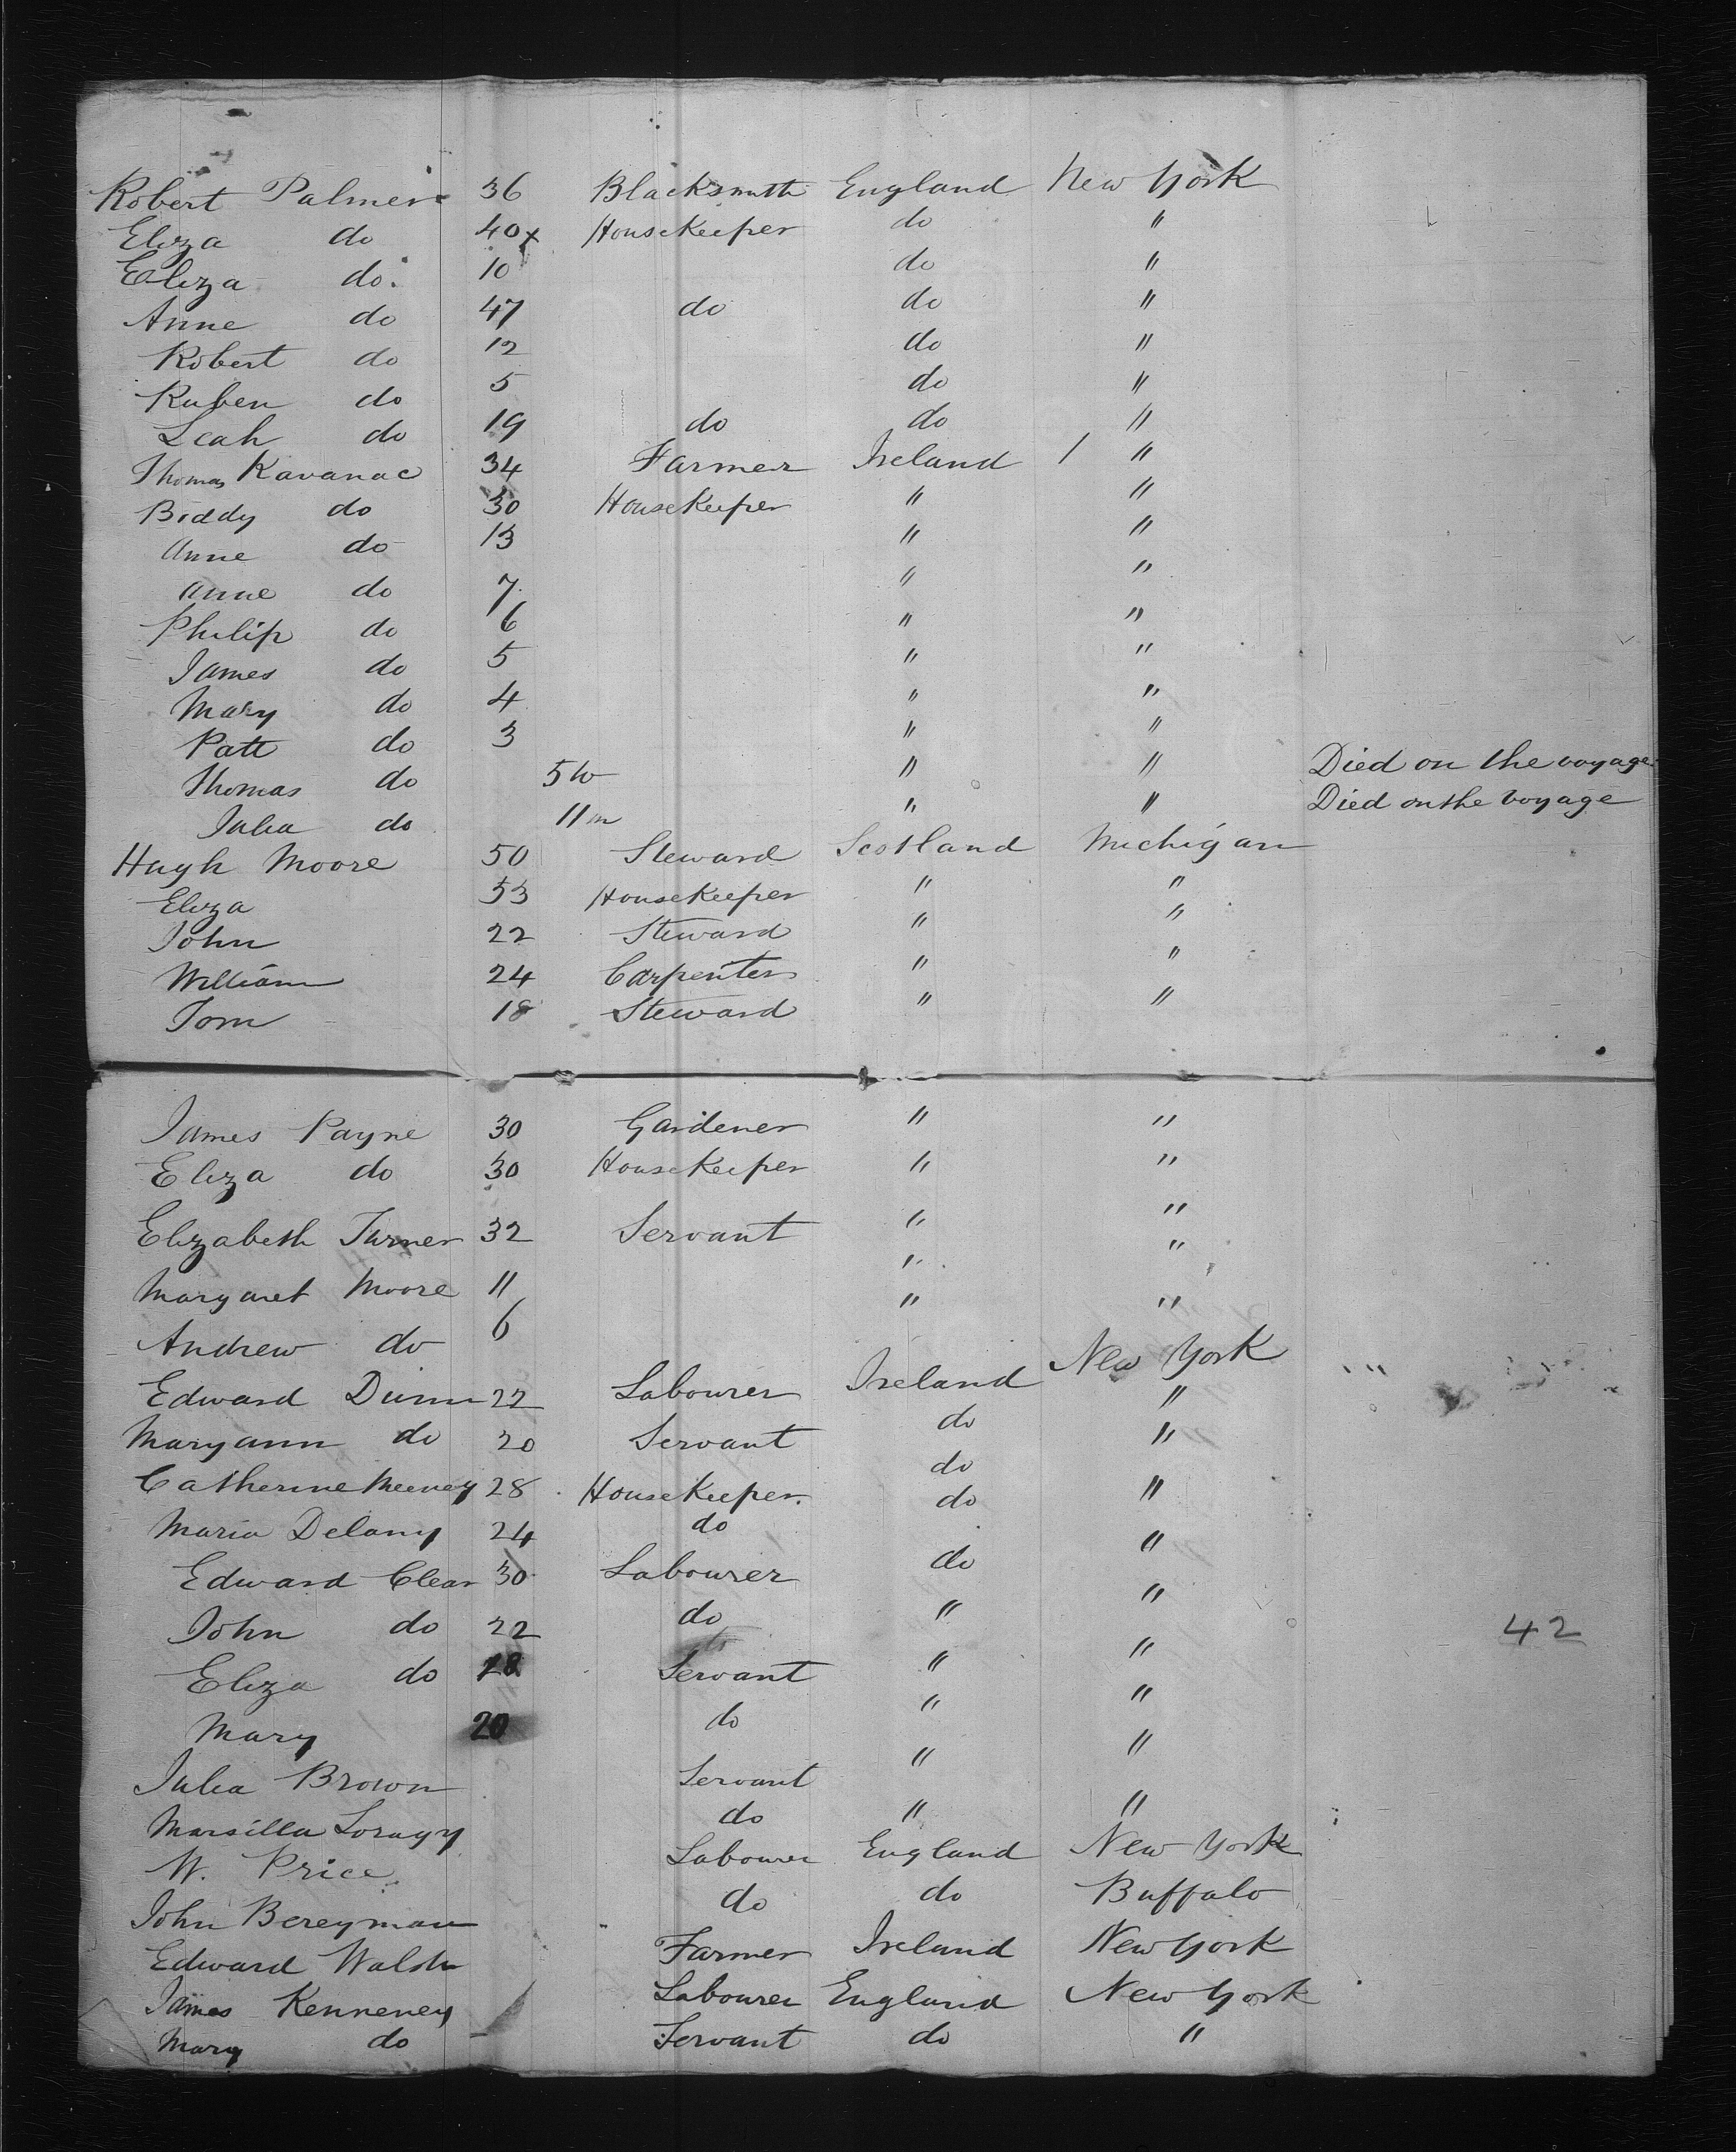 Robert Palmer 36 Blacksmith England New York
Eliza do 40x HouseKeeper do "
Eliza do. 10 do "
Anne do 47 do do "
Robert do 12 do "
Ruben do 5 do "
Leah do 19 do do "
Thomas Kavanac 34 Farmer Ireland / "
Biddy do 30 HouseKeeper " "
Anne do 13 " "
Anne do 7. " "
Philip do 6 " "
James do 5 " "
Mary do 4 " "
Patt do 3 " "
Thomas do 5w " " Died on the voyage
Julia do 11m " " Died on the voyage
Hugh Moore 50 Steward Scotland Michigan
Eliza 53 HouseKeeper " "
John 22 Steward " "
William 24 Carpenter " "
Tom 18 Steward " "
James Payne 30 Gardener " "
Eliza do 30 HouseKeeper " "
Elizabeth Turner 32 Servant " "
Margaret Moore 11 " "
Andrew do 6 " "
Edward Dunn 22 Labourer Ireland New York
Maryann do 20 Servant do "
Catherine Meeney 28 HouseKeeper. do "
Maria Delany 24 do do "
Edward Clear 30 Labourer do "
John do 22 do " "
Eliza do 18 Servant " "
Mary 20 do " "
Julia Brown Servant " "
Marsilla do " "
W. Price Labourer England New York
John Bereyman do do Buffalo
Edward Walsh Farmer Ireland New York
James Kenneney Labourer England New York
Mary do Servant do "
42